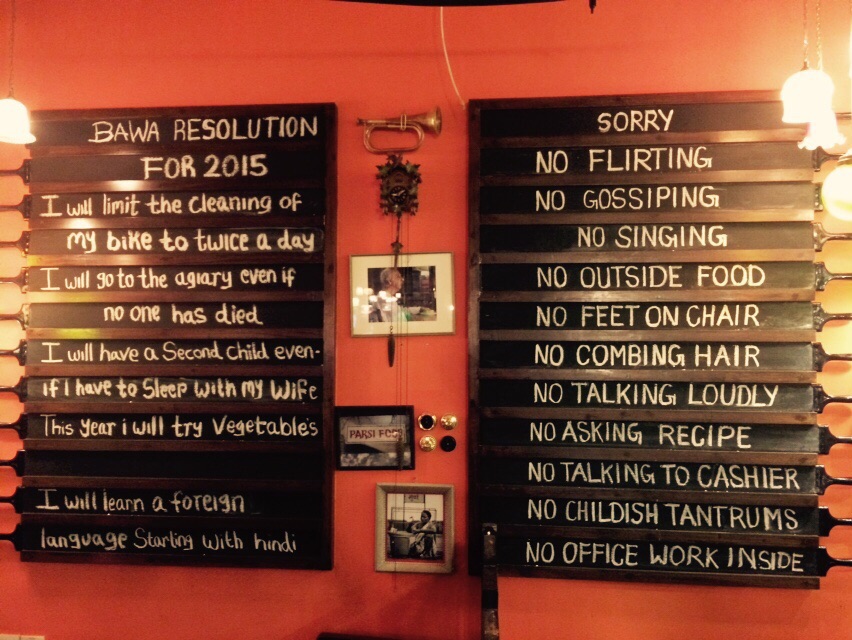 BAWA RESOLUTION
FOR 2015
I will limit the cleaning of
my bike to twice a day
I will go to the agiary even if
no one has died
I will have a Second child even-
if I have to Sleep with my Wife
This year i will try Vegetable's
I will learn a foreign
language Starting with hindi
PARSI FOOD
SORRY
NO FLIRTING
NO GOSSIPING
NO SINGING
NO OUTSIDE FOOD
NO FEET ON CHAIR
NO COMBING HAIR
NO TALKING LOUDLY
NO ASKING RECIPE
NO TALKING TO CASHIER
NO CHILDISH TANTRUMS
NO OFFICE WORK INSIDE